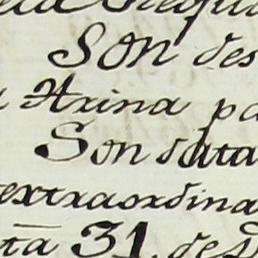 Son des
Harina pa
Son data
extraordina
ta 31. de